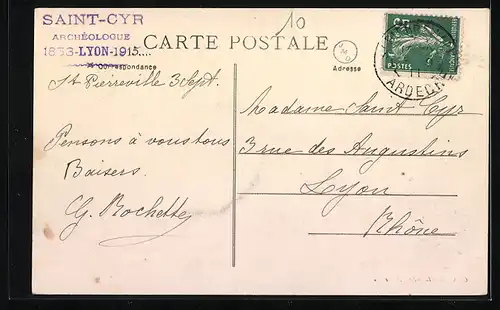 SAINT-CYR
ARCHÉOLOGUE
1853-LYON-1915....
10
CARTE POSTALE
Correspondance
Adresse
POSTES
ARDECHE
St Pierreville 3 Sept.
Pensons à vous tous
Baisers.
G. Rochette
Madame Saint Cyr
3 rue des Augustins
Lyon
Rhône